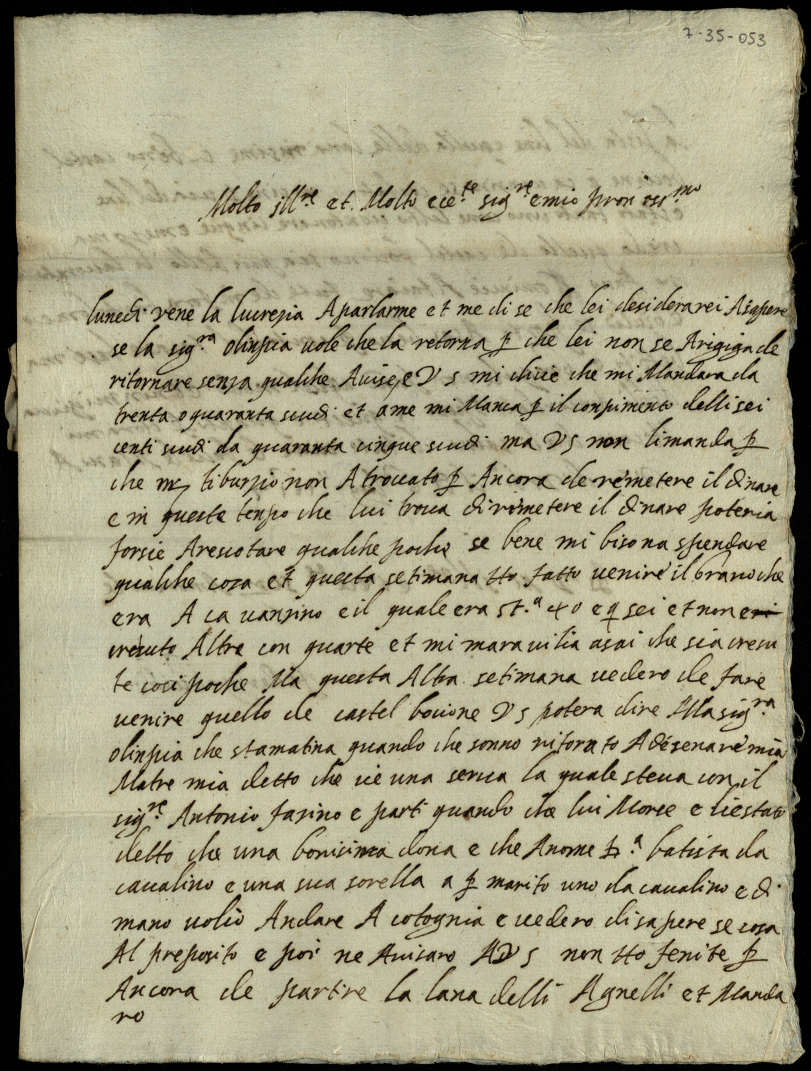 7-35-053
Molto ill.re et. Molto ecc.te sig.re e mio pron oss.mo
lunedi vene la lucrezia A parlarme et me di se che lei desiderarei A sapere
se la sig.ra olinpia vole che la retorna p che lei non se Arigiga de
ritornare senza qualche Aviso, e V S mi dicie che mi Mandara da
trenta o quaranta scudi et a me mi Manca p il conpimento delli sei
centi scudi da quaranta cinque scudi ma V S non li manda p
che m tiburzio non A trovato p Ancora de remetere il dinare
e in queste tenpo che lui trova di rimetere il dinare poteria
forsie A rescotare qualche poche se bene mi bisona spendare
qualche cosa et questa setimana tto fatto venire il Grano che
era A ca vanzino e il quale era st.a 40 e q sei et non e
cresuto Altre con quarte et mi maravilia asai che sia cresu
te cosi poche Ma questa Altra setimana vedero de fare
venire quello de castel bocione V S potera dire Alla sig.ra
olinpia che stamatina quando che sonno ritornato A desenare mia
Matre mia detto che vie una serva la quale steva con il
sig.re Antonio fasino e parti quando che lui Morse e lie stato
detto che una bonisima dona e che A nome p.a batista da
cavalino e una sua sorella a p marito uno da cavalino e di
mano volio Andare A cotognia e vedero di sapere se cosa
Al preposito e poi ne Avisaro A V S non tto fenite p
Ancora de partire la lana delli Agnelli et Manda
ro